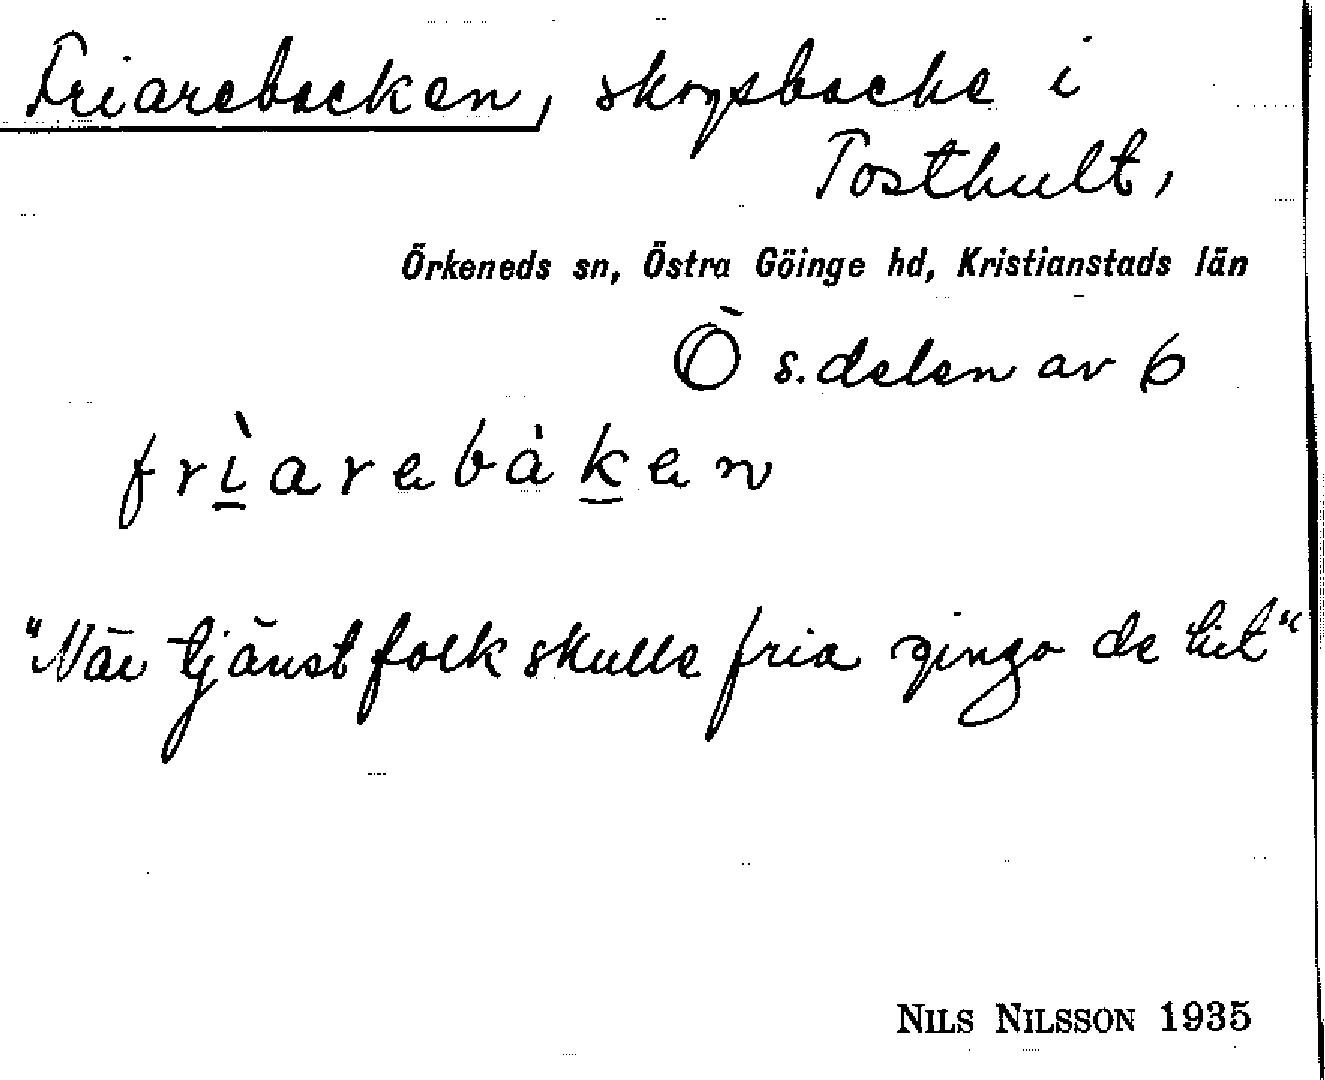 Friarebacken, skogsbacke i
Tosthult,
Örkeneds sn, Östra Göinge hd, Kristianstads län
Ö s. delen av 6
frìarebàken
"När tjänstfolk skulle fria gingo de hit"
NILS NILSSON 1935